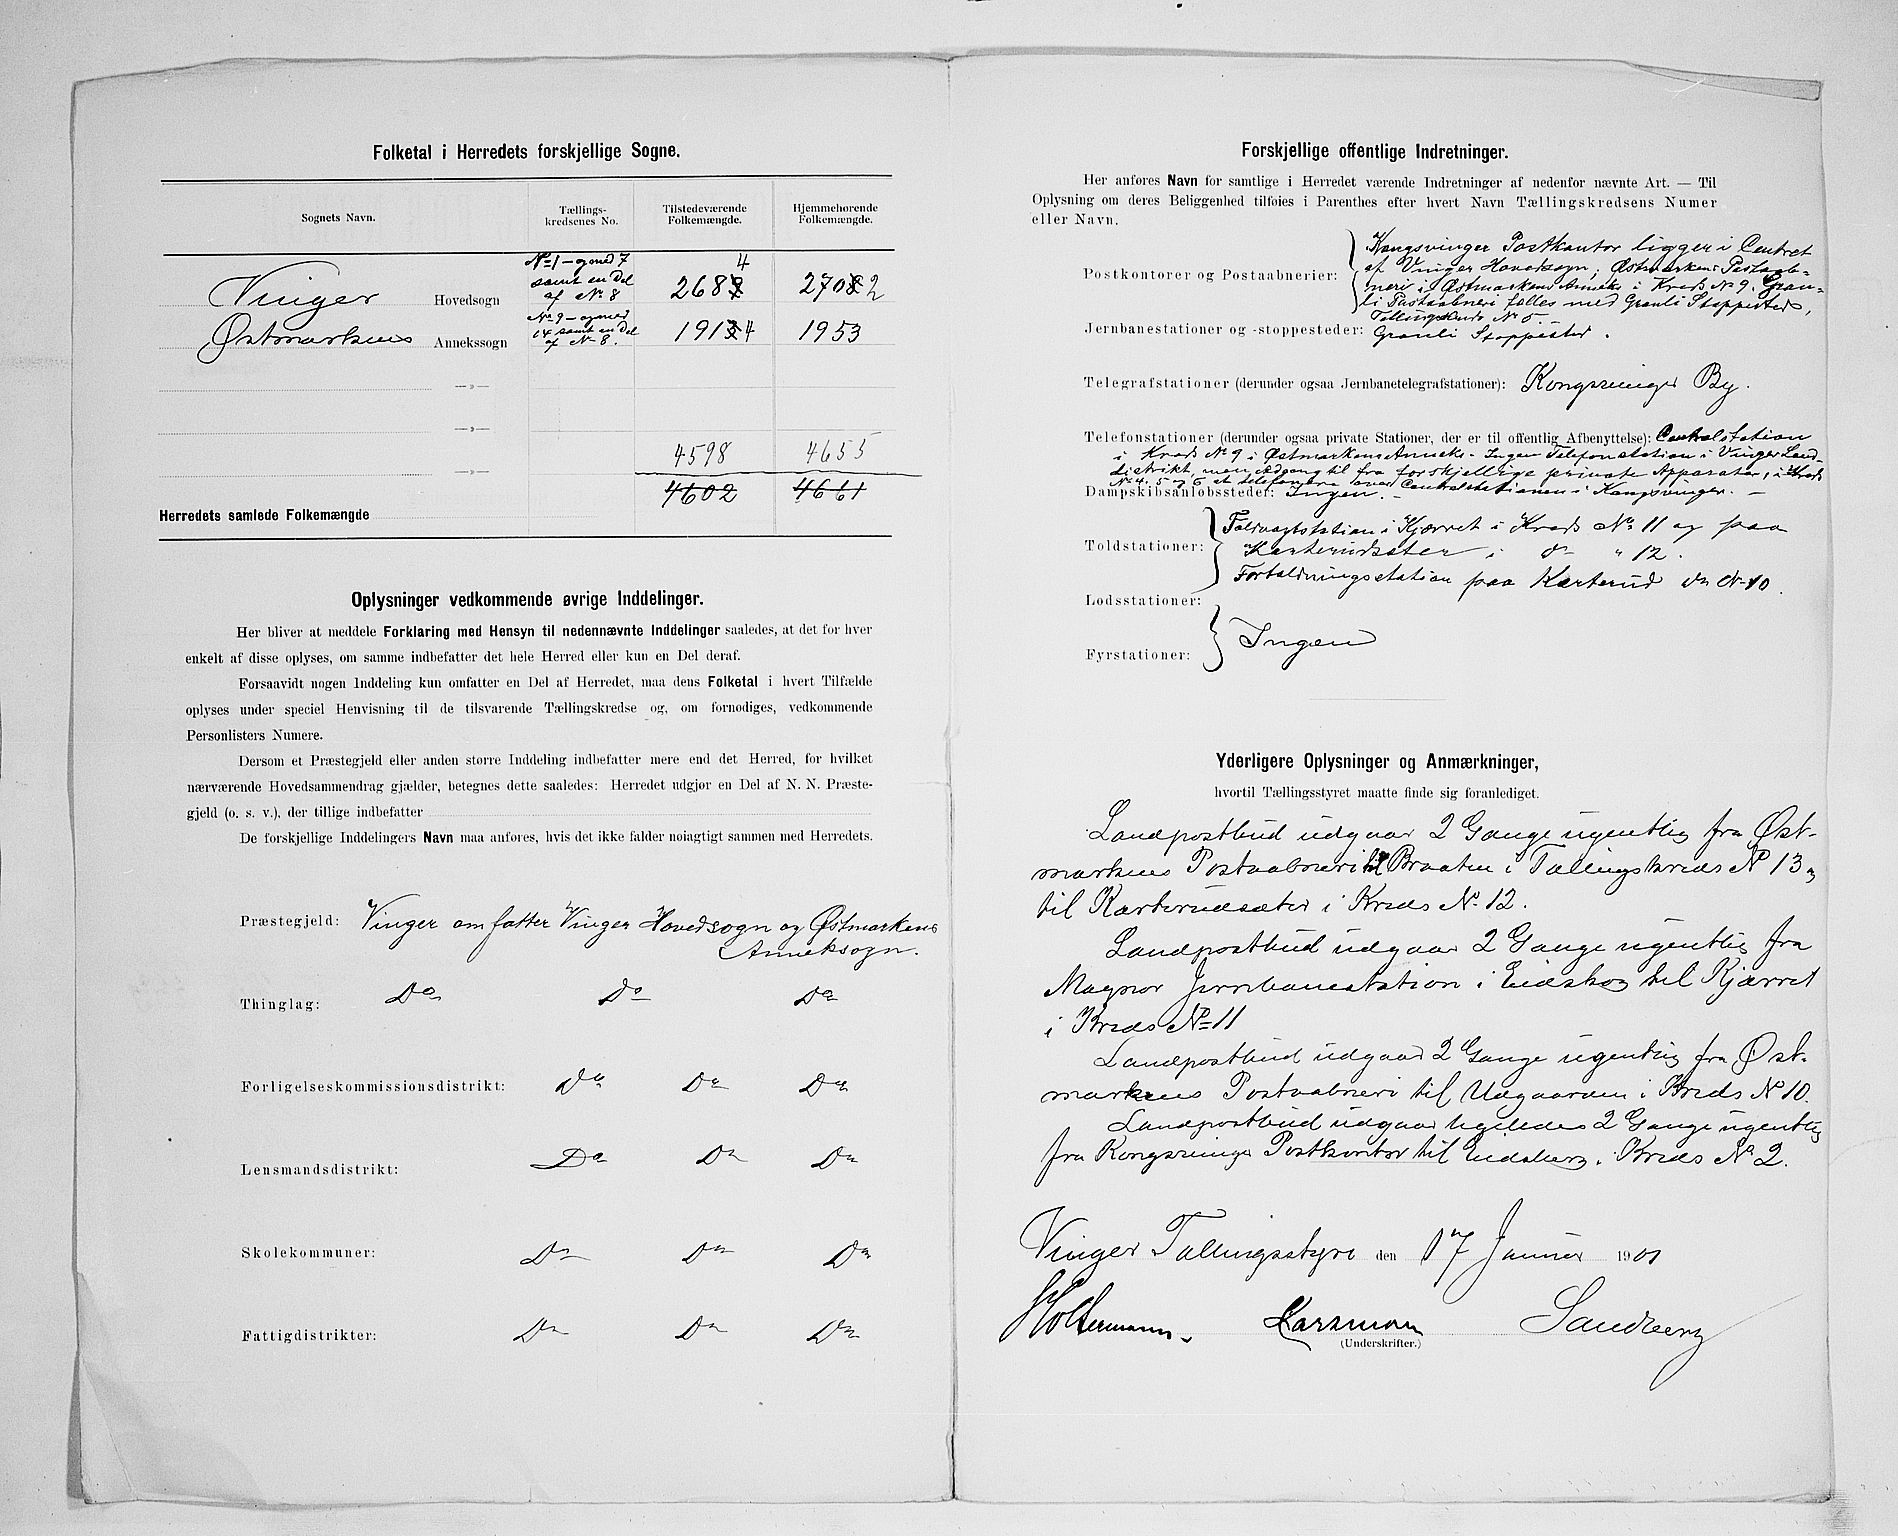 Folketal i Herredets forskjellige Sogne.
Sognets Navn.
Tællings-
kredsenes No.
Tilstedeværende
Folkemængde.
Hjemmehørende
Folkemængde.
Vinger Hovedsogn
No 1 – og med 7
samt en Del
af No 8
2684
2702
Østmarkens Annekssogn
No 9 – og med
14 samt en Del
af No 8.
1914
1953
—»—
—»—
4598 4655
—»—
4602 4661
Herredets samlede Folkemængde
Oplysninger vedkommende øvrige Inddelinger.
Her bliver at meddele Forklaring med Hensyn til nedennævnte Inddelinger saaledes, at det for hver
enkelt af disse oplyses, om samme indbefatter det hele Herred eller kun en Del deraf.
Forsaavidt nogen Inddeling kun omfatter en Del af Herredet, maa dens Folketal i hvert Tilfælde
oplyses under speciel Henvisning til de tilsvarende Tællingskredse og, om fornødiges, vedkommende
Personlisters Numere.
Dersom et Præstegjeld eller anden større Inddeling indbefatter mere end det Herred, for hvilket
nærværende Hovedsammendrag gjælder, betegnes dette saaledes: Herredet udgjør en Del af N. N. Præste-
gjeld (o. s. v.), der tillige indbefatter
De forskjellige Inddelingers Navn maa anføres, hvis det ikke falder nøiagtigt sammen med Herredets.
Præstegjeld: Vinger omfatter Vinger Hovedsogn og Østmarkens
Annekssogn.
Thinglag: Do Do Do
Forligelseskommissionsdistrikt: Do Do Do
Lensmandsdistrikt: Do Do Do
Skolekommuner: Do Do Do
Fattigdistrikter: Do Do Do
Forskjellige offentlige Indretninger.
Her anføres Navn for samtlige i Herredet værende Indretninger af nedenfor nævnte Art. — Til
Oplysning om deres Beliggenhed tilføies i Parenthes efter hvert Navn Tællingskredsens Numer
eller Navn.
Postkontorer og Postaabnerier:
Kongsvinger Postkontor ligger i Centret
af Vinger Hovedsogn; Østmarkens Postaab-
neri i Østmarkens Anneks i Kreds No 9. Gran-
li Postaabneri fælles med Granli Stoppested,
Tællingskreds No 5
Jernbanestationer og -stoppesteder: Granli Stoppested.
Telegrafstationer (derunder ogsaa Jernbanetelegrafstationer): Kongsvinger By.
Telefonstationer (derunder ogsaa private Stationer, der er til offentlig Afbenyttelse): Centralstation
i Kreds No 9 i Østmarkens Anneks. Ingen Telefonstation i Vinger Land-
distrikt, men Adgang til fra forskjellige private Apparater, i Kreds
No 4, 5 og 6 at telefonere over Centralstationen i Kongsvinger. –
Dampskibsanløbssteder: Ingen. –
Toldstationer:
Toldvagtstation i Kjærret i Kreds No 11 og paa
Kærterudsæter i do " 12.
Fortoldningsstation paa Kærterud do No 10.
Lodsstationer:
Fyrstationer:
Ingen
Yderligere Oplysninger og Anmærkninger,
hvortil Tællingsstyret maatte finde sig foranlediget.
Landpostbud udgaar 2 Gange ugentlig fra Øst-
markens Postaabneri til Braaten i Tællingskreds No 13 og
til Kærterudsæter i Kreds No 12.
Landpostbud udgaar 2 Gange ugentlig fra
Magnor Jernbanestation i Eidskog til Kjærret
i Kreds No 11
Landpostbud udgaar 2 Gange ugentlig fra Øst-
markens Postaabneri til Udgaarden i Kreds No 10.
Landpostbud udgaar ligeledes 2 Gange ugentlig
fra Kongsvinger Postkontor til Eidsberg i Kreds No 2.
Vinger Tællingsstyre den 17 Januar 1901
Holtermann. Larsmon Sandberg
(Underskrifter.)